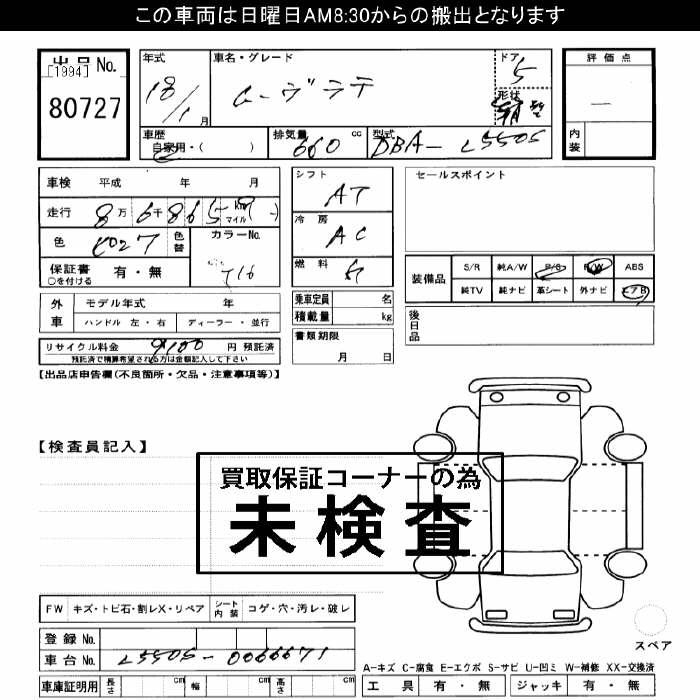 この車両は日曜日AM8:30からの搬出となります
出品 No.
[1994]
80727
年式
18/1 月
車名・グレード
ムーヴラテ
ドア
5
形状
評価点
内装
車歴
自家用・( )
排気量
660 cc
型式
DBA- L550S
車検 平成 年 月
走行 8万 6千 865 km マイル
色
色替
カラーNo.
T16
保証書
○を付ける
有・無
シフト
AT
冷房
AC
燃料
ガ
セールスポイント
装備品
S/R 純A/W P/S P/W ABS
純TV 純ナビ 革シート 外ナビ エアB
外車
モデル年式 年
ハンドル 左・右 ディーラー・並行
乗車定員 名
積載量 kg
後日品
リサイクル料金 9100 円 預託済
預託済で精算希望される方は金額記入して下さい
書類期限
月 日
【出品店申告欄(不良箇所・欠品・注意事項等)】
【検査員記入】
買取保証コーナーの為
未検査
FW キズ・トビ石・割レX・リペア シート内装 コゲ・穴・汚レ・破レ
スペア
登録 No.
車台 No. L550S-0066671
A-キズ C-腐食 E-エクボ S-サビ U-凹ミ W-補修 XX-交換済
車庫証明用 長さ cm 幅 cm 高さ cm
工具 有・無 ジャッキ 有・無